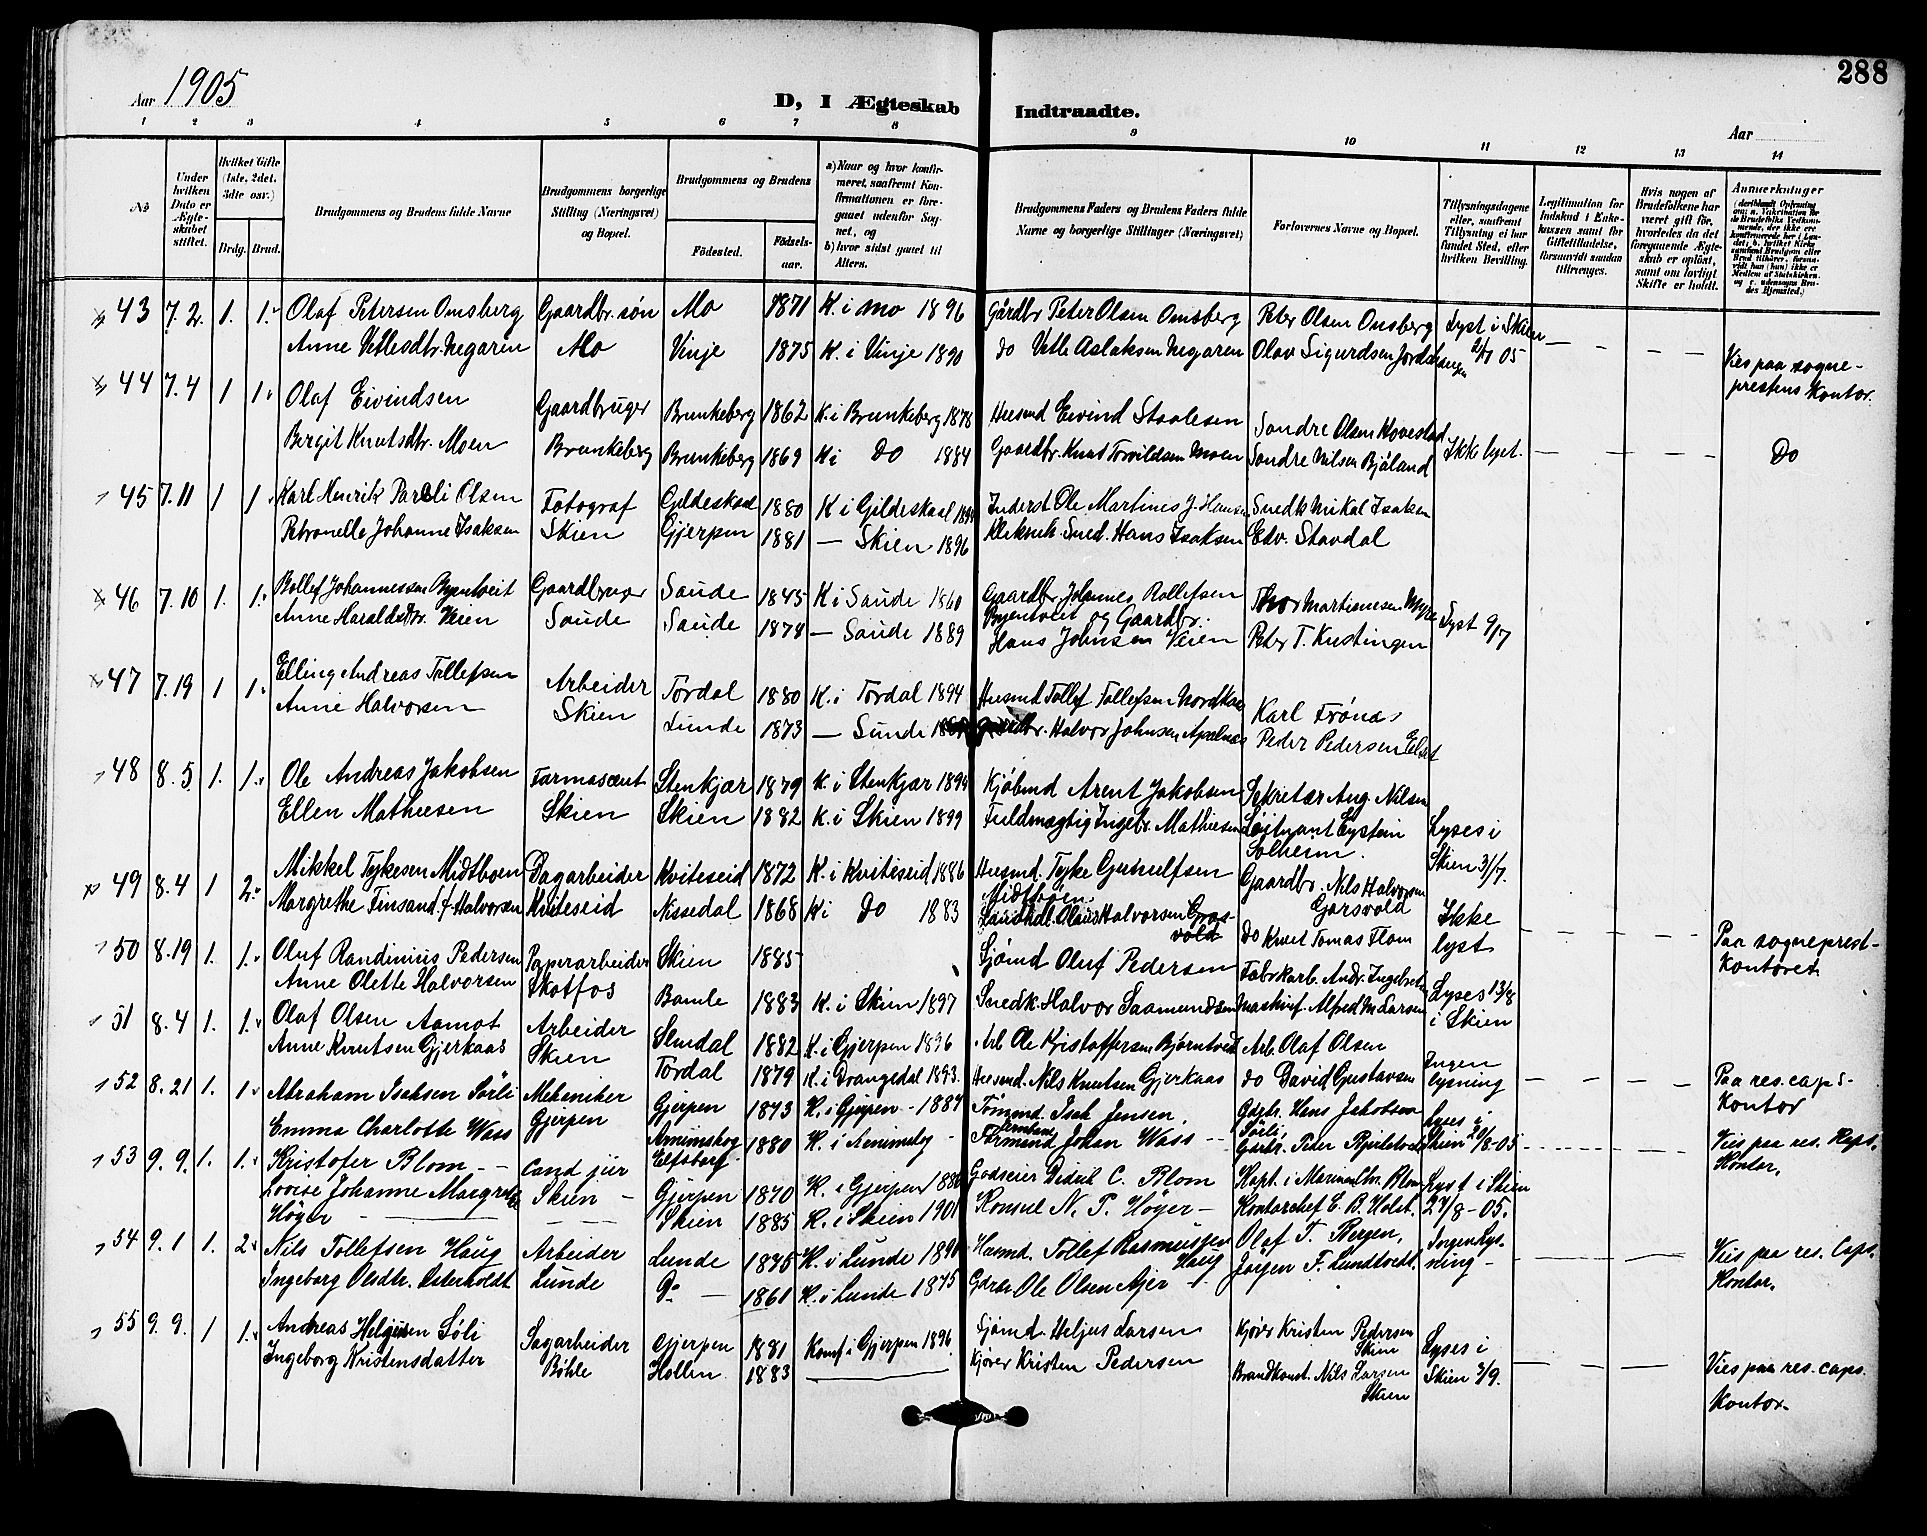 288
Aar 1905
D, I Ægteskab Indtraadte.
Aar
1 2 3 4 5 6 7 8 9 10 11 12 13 14
No
Under hvilken Dato er Ægteskabet stiftet.
Hvilket Gifte (1ste, 2det, 3die osv.)
Brdg. Brud.
Brudgommens og Brudens fulde Navne
Brudgommens borgerlige Stilling (Næringsvei) og Bopæl.
Brudgommens og Brudens
Fødested.
Fødselsaar.
a) Naar og hvor konfirmeret, saafremt Konfirmationen er foregaaet udenfor Sognet, og
b) hvor sidst gaaet til Alters.
Brudgommens Faders og Brudens Faders fulde Navne og borgerlige Stillinger (Næringsvei)
Forlovernes Navne og Bopæl.
Tillysningsdagene eller, saafremt Tillysning ei har fundet Sted, efter hvilken Bevilling.
Legitimation for Indskud i Enkekassen samt for Giftetilladelse, forsaavidt saadan tiltrænges.
Hvis nogen af Brudefolkene har været gift før, hvorledes da det foregaaende Ægteskab er opløst, samt om lovligt Skifte er holdt.
Anmerkninger
43 7.2. 1. 1. Olaf Petersen Omsberg Gaardbr. søn Mo 1871 K. i Mo 1896 Gårdbr Peter Olsen Omsberg Peter Olsen Omsberg Lyst i Skien
Anne Vetlesdtr. Negaren Mo Vinje 1875 K. i Vinje 1890 do Vetle Aslaksen Negaren Olav Sigurdsen 2/7 05 — — — Vies paa sogneprestens Kontor.
44 7.4 1 1. Olaf Eivindsen Gaardbruger Brunkeberg 1862 K. i Brunkeberg 1878 Husmd Eivind Staalesen Sondre Olsen Hovestad
Bergit Knutsdtr. Moen Brunkeberg Brunkeberg 1869 K i Do 1884 Gaardbr. Knut Torvildsen Moen Sondre Nilsen Bjåland Ikke lyst. — — — Do
45 7.11 1 1. Karl Henrik Olsen Fotograf Gildeskaal 1880 K i Gildeskaal Inderst Ole Martinus J. Hansen Snedk Mikal Isaksen
Petronelle Johanne Isaksen Skien Gjerpen 1881 — Skien 1896 Sned. Hans Isaksen Edv. Stavdal
46 7.10 1. 1. Rollef Johannessen Bjentveit Gaardbruger Saude 1845 K i Saude 1860 Gaardbr. Johannes Rollefsen Thor Martinusen Myre
Anne Haraldsdtr. Veien Saude Saude 1874 — Saude 1889 Bjentveit og Gaardbr. Lyst 9/7
Hans Johnsen Veien Peter T. Kustingen
47 7.19 1 1. Elling Andreas Tollefsen Arbeider Tørdal 1880 K. i Tørdal 1894 Husmd Tollef Tollefsen Karl Frønæs
Anne Halvorsen Skien Lunde 1873 — Lunde Halvor Johnsen Apalnæs Peder Pedersen
48 8.5 1. 1. Ole Andreas Jakobsen Farmaseut Stenkjær 1879 K. i Stenkjær 1894 Kjøbmd Arent Jakobsen Sekretær Aug. Nilsen
Ellen Mathiesen Skien Skien 1882 K. i Skien 1899 Fuldmægtig Ingebr. Mathiesen Løitnant Eystein Solheim. Lyses i Skien 3/7.
49 8.4 1 2. Mikkel Tykesen Midtboen Dagarbeider Kviteseid 1872 K. i Kviteseid 1886 Husmd. Tyke Gunulfsen Midtbøen Gaardbr. Nils Halvorsen Garsvold
Margrethe Finsand f. Halvorsen Kviteseid Nissedal 1868 K i Do 1883 Landhdl. Olaus Halvorsen do Knut Tomas Flom Ikke lyst — — — Paa sogneprestkontoret
50 8.19 1. 1. Oluf Randinius Pedersen Papperarbeider Skien 1885 Sjømd Oluf Pedersen Fabrkarb. Andr. Ingebretsen
Anne Olette Halvorsen Skotfos Bamle 1883 K. i Skien 1897 Snedk. Halvor Saamundsen Maskinf. Alfred M. Larsen Lyses 13/8 i Skien
51 8.4 1. 1. Olaf Olsen Aamot Arbeider Slemdal 1882 K. i Gjerpen 1896 Arb Ole Kristoffersen Bjørntvedt Arb. Olaf Olsen
Anne Knutsen Gjerkaas Skien Tørdal 1879 K. i Drangedal 1893. Husmd. Nils Knutsen Gjerkaas do David Gustavsen Ingen lysning — — — Paa res. caps-Kontor
52 8.21 1. 1. Abraham Isaksen Sørli Mekaniker Gjerpen 1873 K. i Gjerpen - 1887 Tømmd. Isak Jensen Gdbr. Hans Jakobsen Sørli Lyses i Skien 20/8-05
Emma Charlotte Wass Gjerpen Elfsborg 1880 Formand Johan Wass Gårbr. Peder Vies paa res. Kaps. Kontor.
53 9.9. 1. 1. Kristofer Blom — Cand jur Gjerpen 1870 K. i Gjerpen 1886 Godseier Didrik C. Blom Kapt. i Marinen Chr. Blom Lyst i Skien
Lovise Johanne Margrethe Høyer Skien — Skien 1885 K. i Skien 1901 Konsul N. P. Høyer — Kontorchef C. B. Holst. 27/8-05.
54 9.1 1. 2. Nils Tollefsen Haug Arbeider Lunde 1875 K. i Lunde 1890 Husmd. Tollef Rasmussen Haug Olaf T. Bergen, Ingen Lysning —
Ingeborg Olsdtr. Østerholdt Lunde Do — 1861 K. i Lunde 1875 Gdrbr Ole Olsen Jørgen F. Lundtvedt. Vies paa res. Caps. Kontor.
55 9.9. 1 1. Andreas Helgesen Søli Sagarbeider Gjerpen 1881 Konf. i Gjerpen 1896 Sjømd. Heljus Larsen Kjører Kristen Pedersen Skien Lyses i
Ingeborg Kristensdatter Bøhle Hollen 1883 Kjører Kristen Pedersen Brandkonst. Nils Larsen Skien Skien 3/9. — — — Vies paa res. caps. Kontor.